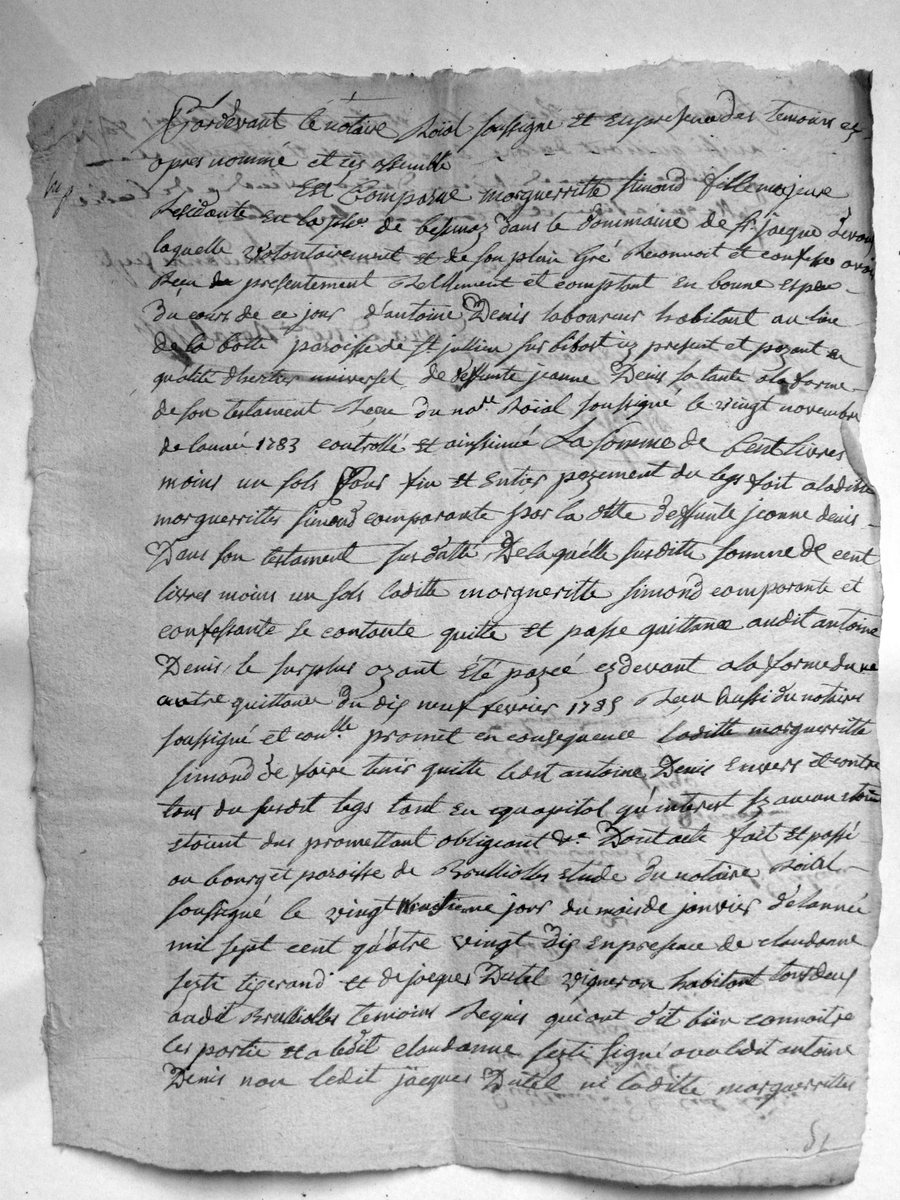 Pardevant le notaire Roïal soussigné et en presence des temoins cy
apres nommé et ces assemblé
Est Comparue morguerritte simond fille majeure
Residante en la ph. de bessenaz dans le dommaine de Sr jacque
laquelle volontairement et de son plain Gré Reconnoit et confesse avoir
Recu presentement Réellement et comptant en bonne espece
du cours de ce jour d'antoine Denis laboureur habitant au lieu
de la Cotte paroisse de st jullien sur bibost icy present et pazant en
qualité d'heritier universel de deffunte jeanne Denis sa tante a la forme
de son testament Recu du nore. Roïal soussigné le vingt novembre
de lannée 1783 controllé et ainssinué La somme de Cent livres
moins un sols Pour fin et entier pazement du legs fait a laditte
morguerrittes simond comparante par la ditte deffunte jeanne denis
Dans son testament susdatté, De laquelle susditte somme de cent
livres moins un sols laditte morgueritte simond comparante et
confessante se contante quitte et passe quittance audit antoine
Denis, le surplus ozant été pazée cy devant a la forme du ne
autre quittance du dix neuf fevrier 1785 Recu aussi du notaire
soussigné et conlle promet en consequence laditte morguerritte
simond de faire tenir quitte ledit antoine Denis envers et contre
tous du susdit legs tant en quapitol qu'interest sy aucun
etoient dus promettant obligeant &c. Dont acte fait et passé
au bourg et paroisse de Brullioles etude du notaire Roïal
soussigné le vingt jour du mois de janvier de lannée
mil sept cent quatre vingt dix en presence de claudanne
feste tizerand et de jacques Dutel vigneron habitant tous deux
audit Brullioles temoins Requis qui ont dit bien connoitre
les partie et a ledit claudanne feste signé avec ledit antoine
Denis non ledit jacques Dutel ni laditte morguerrittes
51